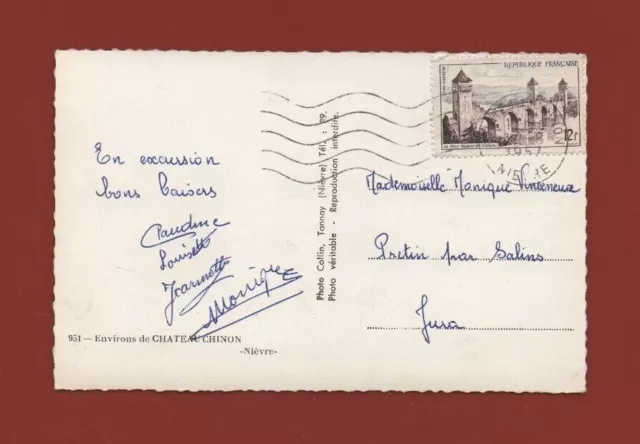 En excursion
bons baisers
Claudine
Louisette
Jeannette
Monique
951 — Environs de CHATEAU CHINON
-Nièvre-
Photo Collin, Tannay (Nièvre) Tél. : 29.
Photo véritable - Reproduction interdite.
REPUBLIQUE FRANÇAISE
12f
1957
NIEVRE
Mademoiselle Monique
Pretin par Salins
Jura